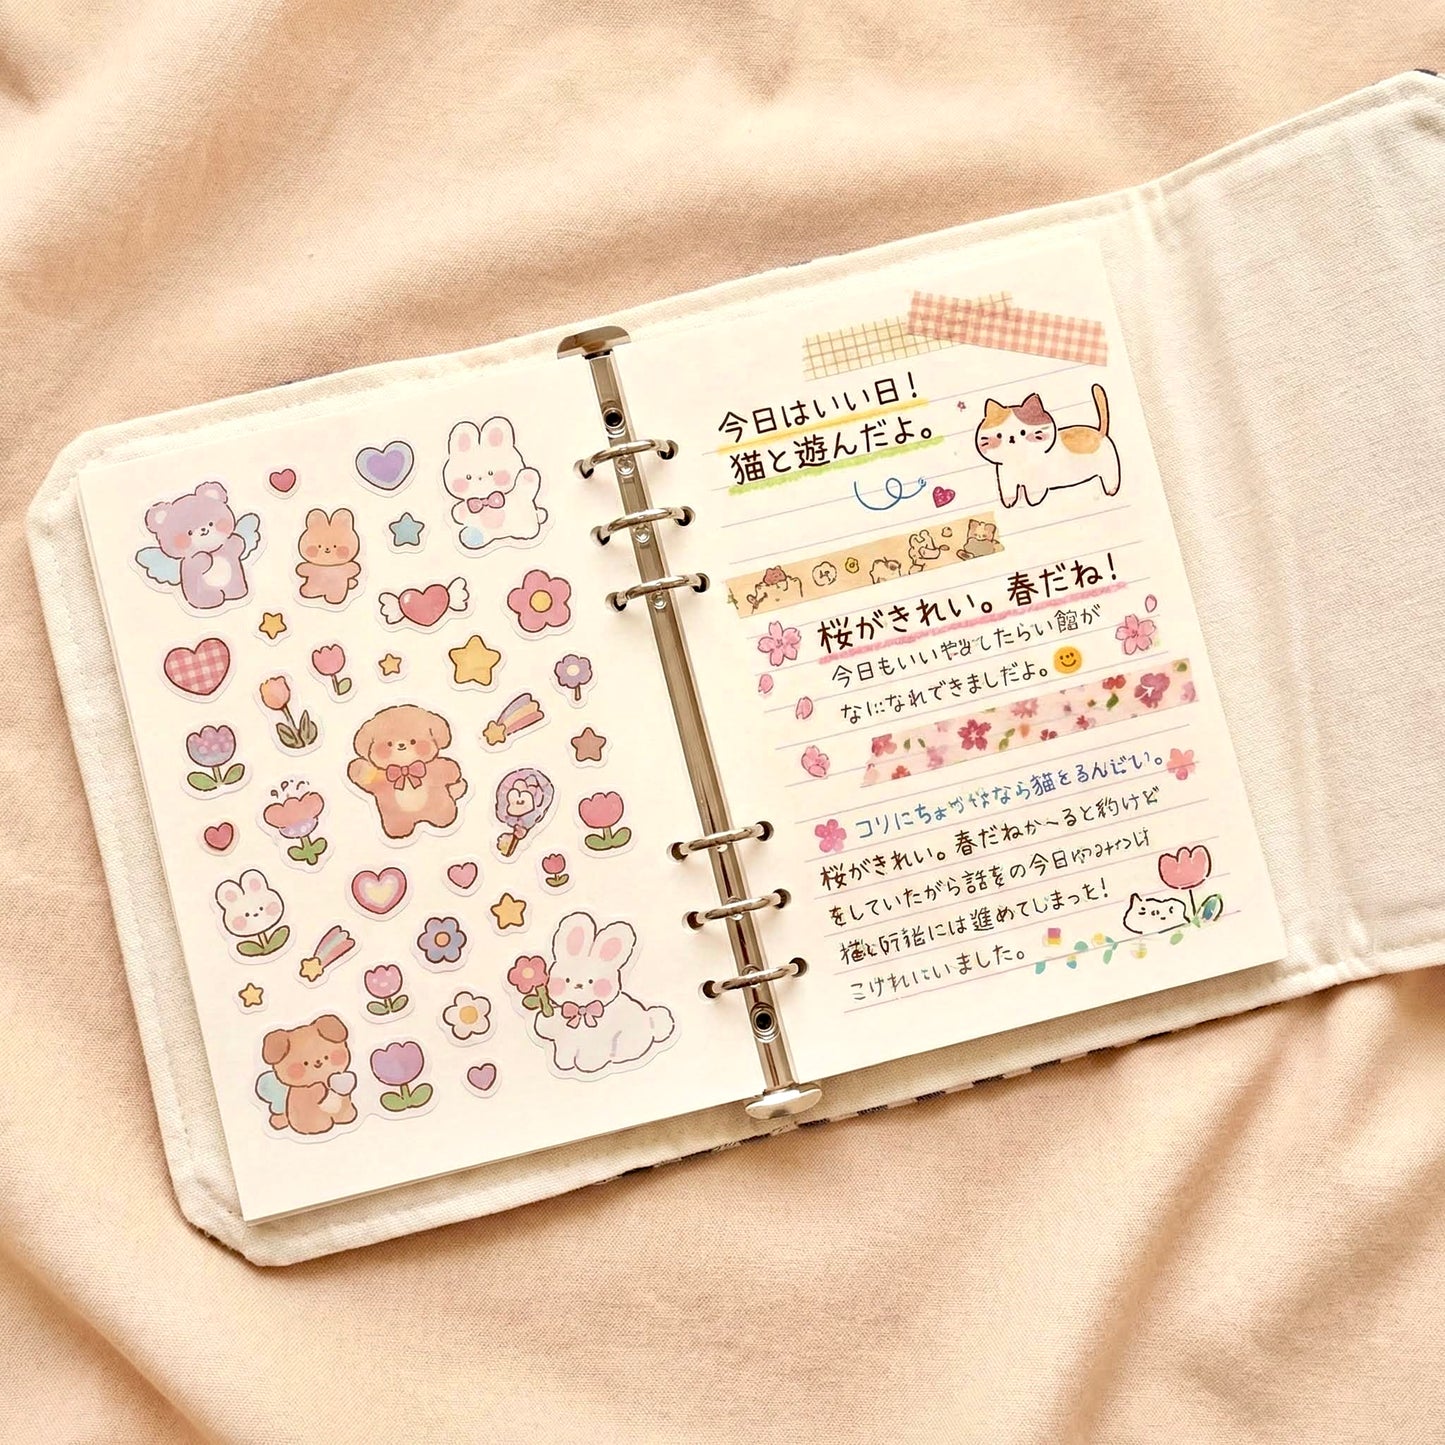 今日はいい日！
猫と遊んだよ。
桜がきれい。春だね！
今日もいい したらい館が
なになれできましだよ。
コリにちょ なら猫をるんどい。
桜がきれい。春だねか〜ると約けど
をしていたがら話をの今日
には進めてしまった！
こけれにいました。